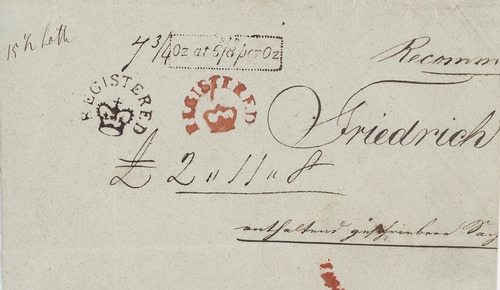 15 ½ loth
7 3/4 Oz at 6/8 per Oz
Recomm
REGISTERED
REGISTERED
Friedrich
£ 2 " 11 " 8
enthaltend geschriebene Sach